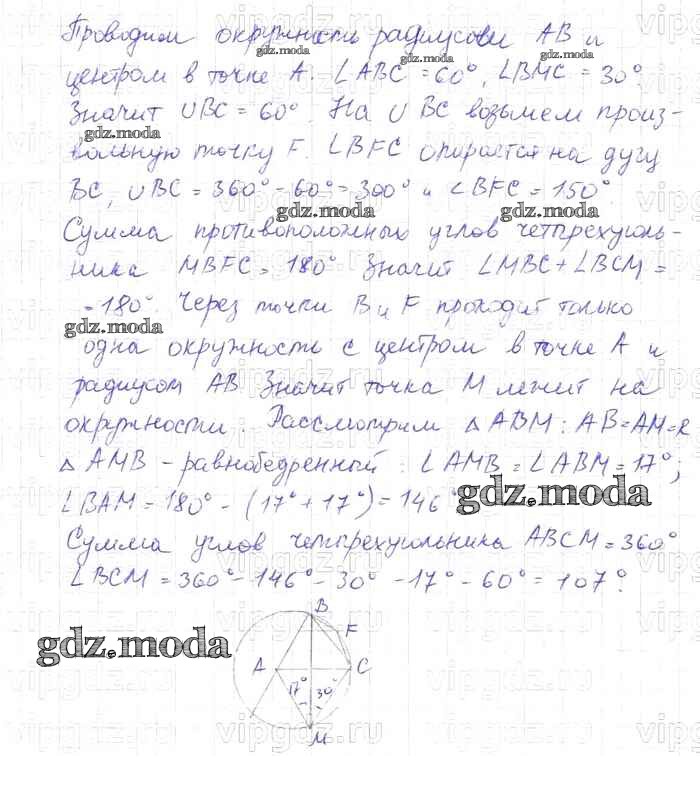 Проводим окружность радиусом AB и
центром в точке A. ∠ABC = 60°, ∠BMC = 30°.
Значит ∪BC = 60°. На ∪ BC возьмем произ-
вольную точку F. ∠BFC опирается на дугу
BC, ∪BC = 360° - 60° = 300° и ∠BFC = 150°.
Сумма противоположных углов четырехуголь-
ника MBFC = 180°. Значит ∠MBC + ∠BCM =
= 180°. Через точки B и F проходит только
одна окружность с центром в точке A и
радиусом AB. Значит точка M лежит на
окружности. Рассмотрим △ ABM: AB = AM = R
△ AMB - равнобедренный. ∠AMB = ∠ABM = 17°;
∠BAM = 180° - (17° + 17°) = 146°
Сумма углов четырехугольника ABCM = 360°
∠BCM = 360° - 146° - 30° - 17° - 60° = 107°.
B
F
A
C
17°
30°
M
gdz.moda
gdz.moda
gdz.moda
gdz.moda
gdz.moda
gdz.moda
gdz.moda
gdz.moda
gdz.moda
vipgdz.ru